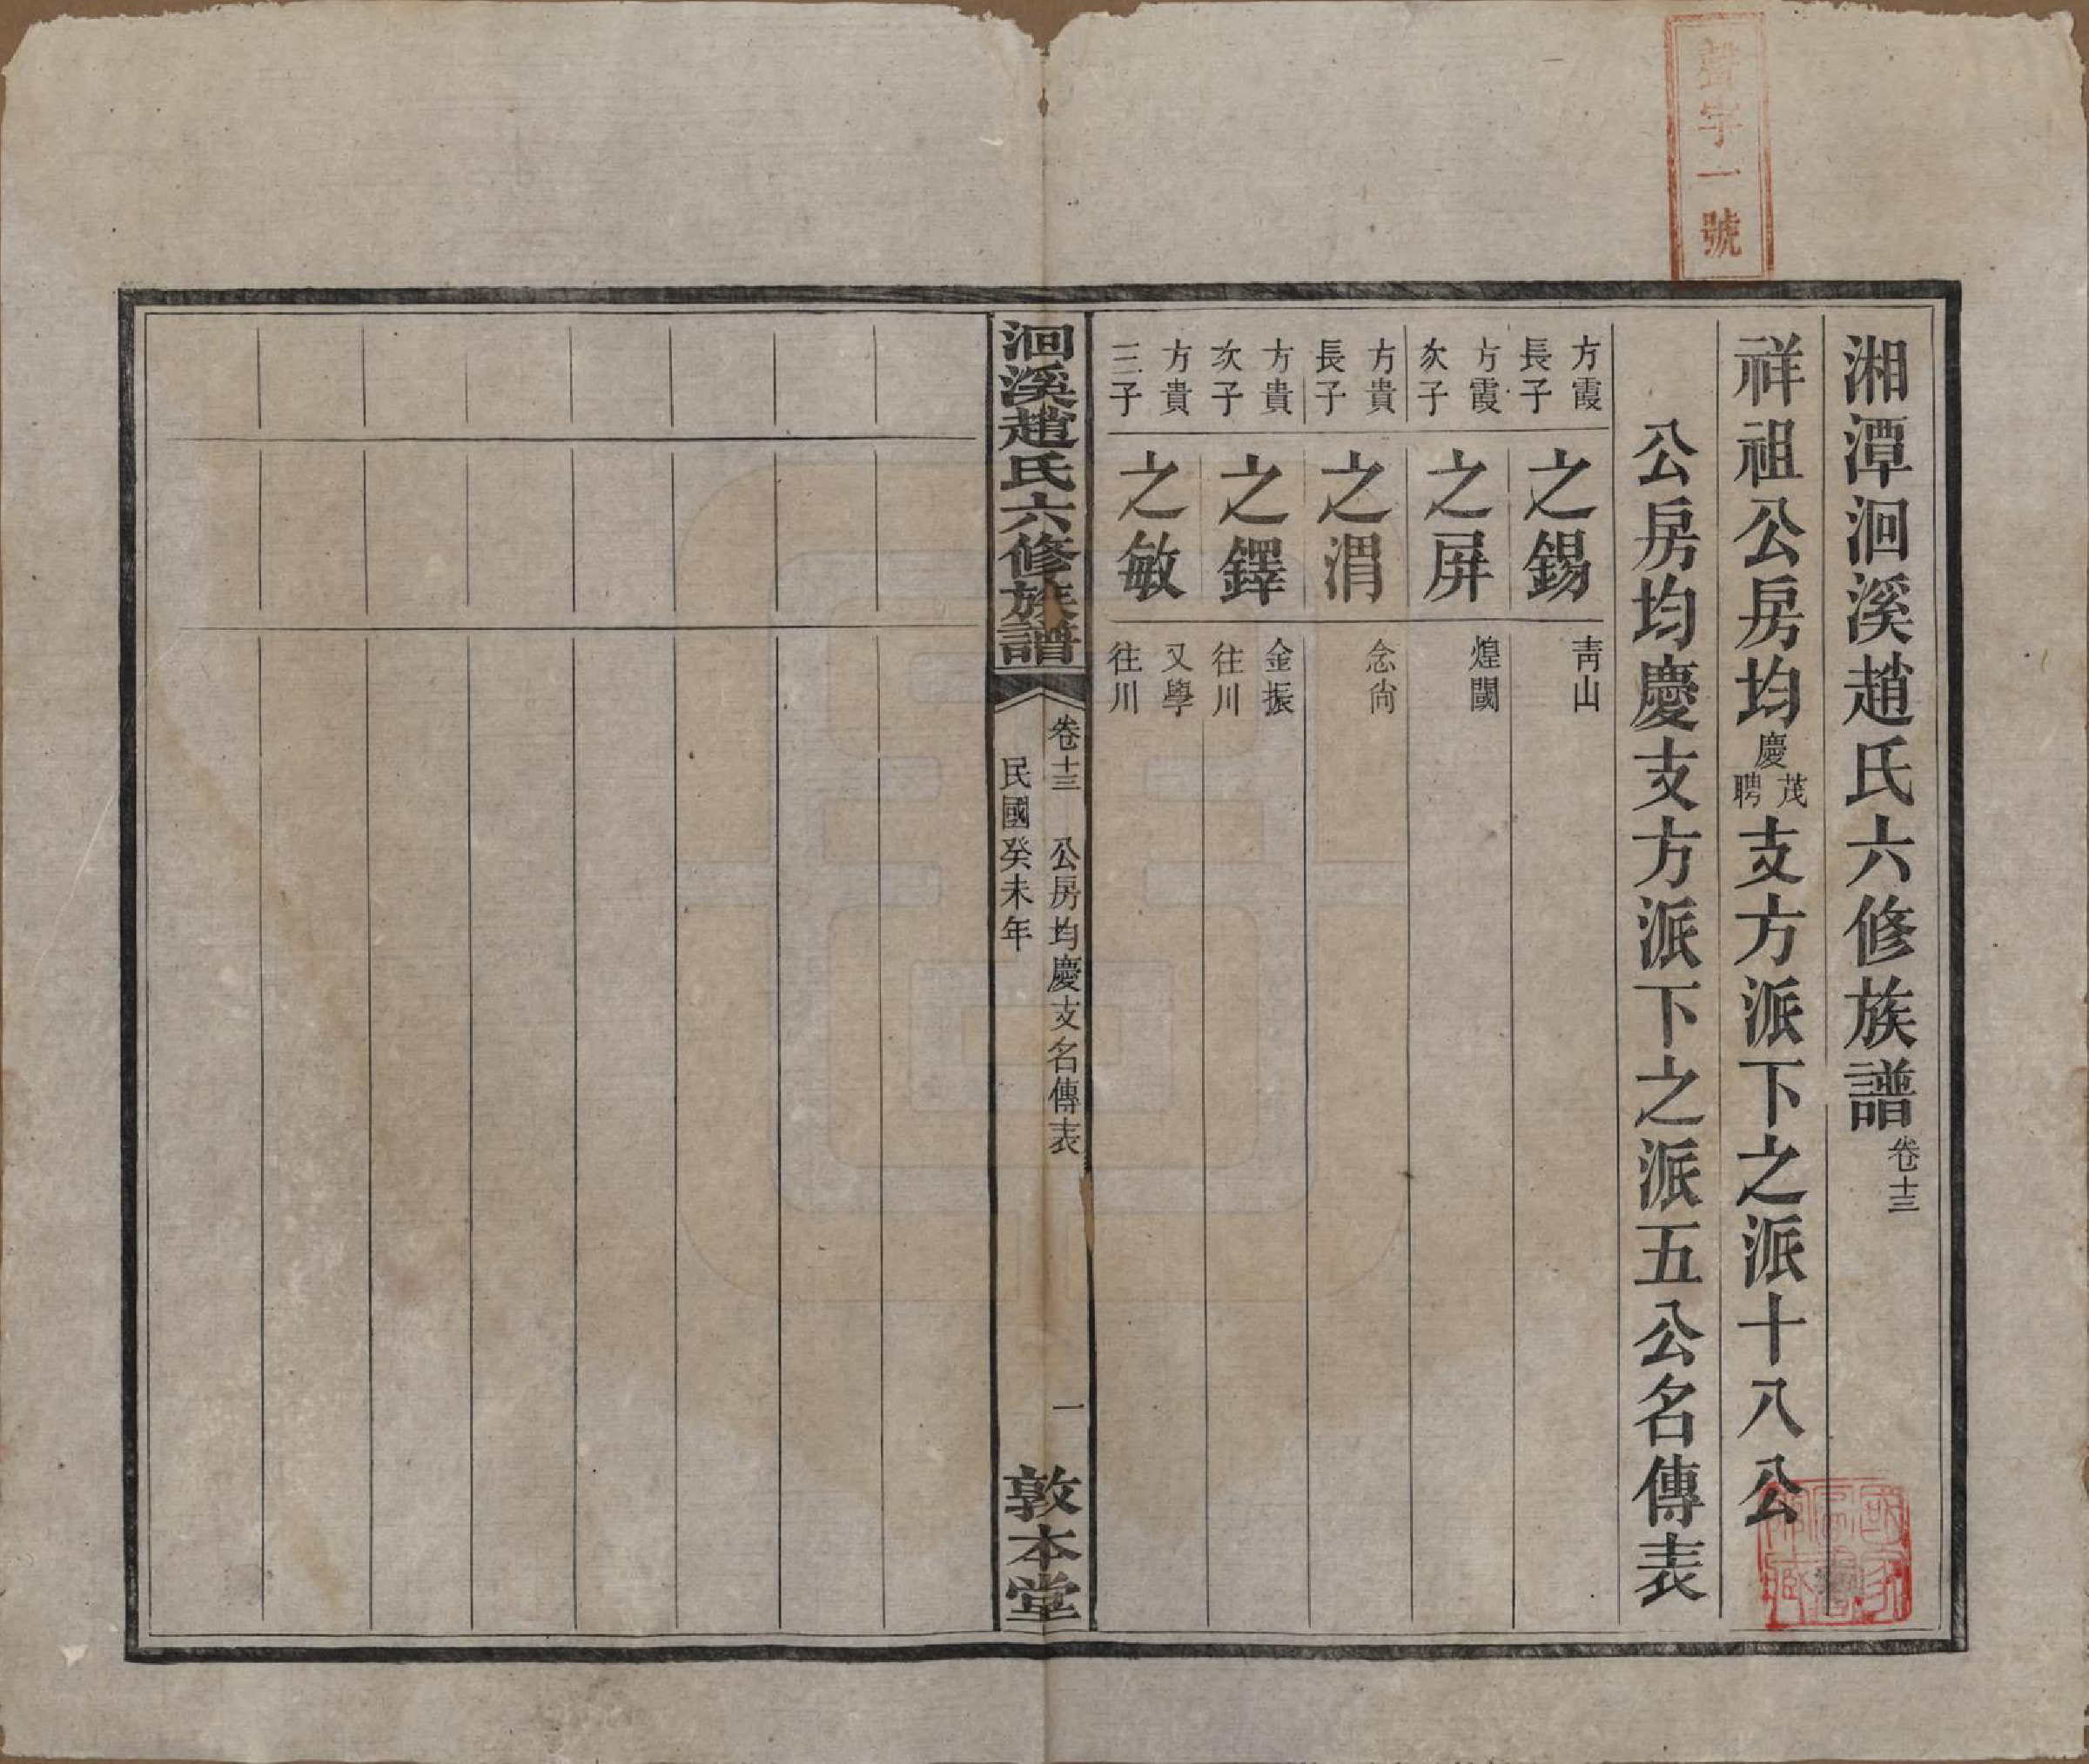 聲字一號
湘潭洄溪趙氏六修族譜卷十三
祥祖公房均慶茂聘支方派下之派十八公
公房均慶支方派下之派五公名傳表
方霞長子
之錫
青山
方霞次子
之屏
煌閾
方貴長子
之渭
念尙
方貴次子
之鐸
金振往川
方貴三子
之敏
又學往川
洄溪趙氏六修族譜
卷十三 公房均慶支名傳表 一
民國癸未年
敦本堂